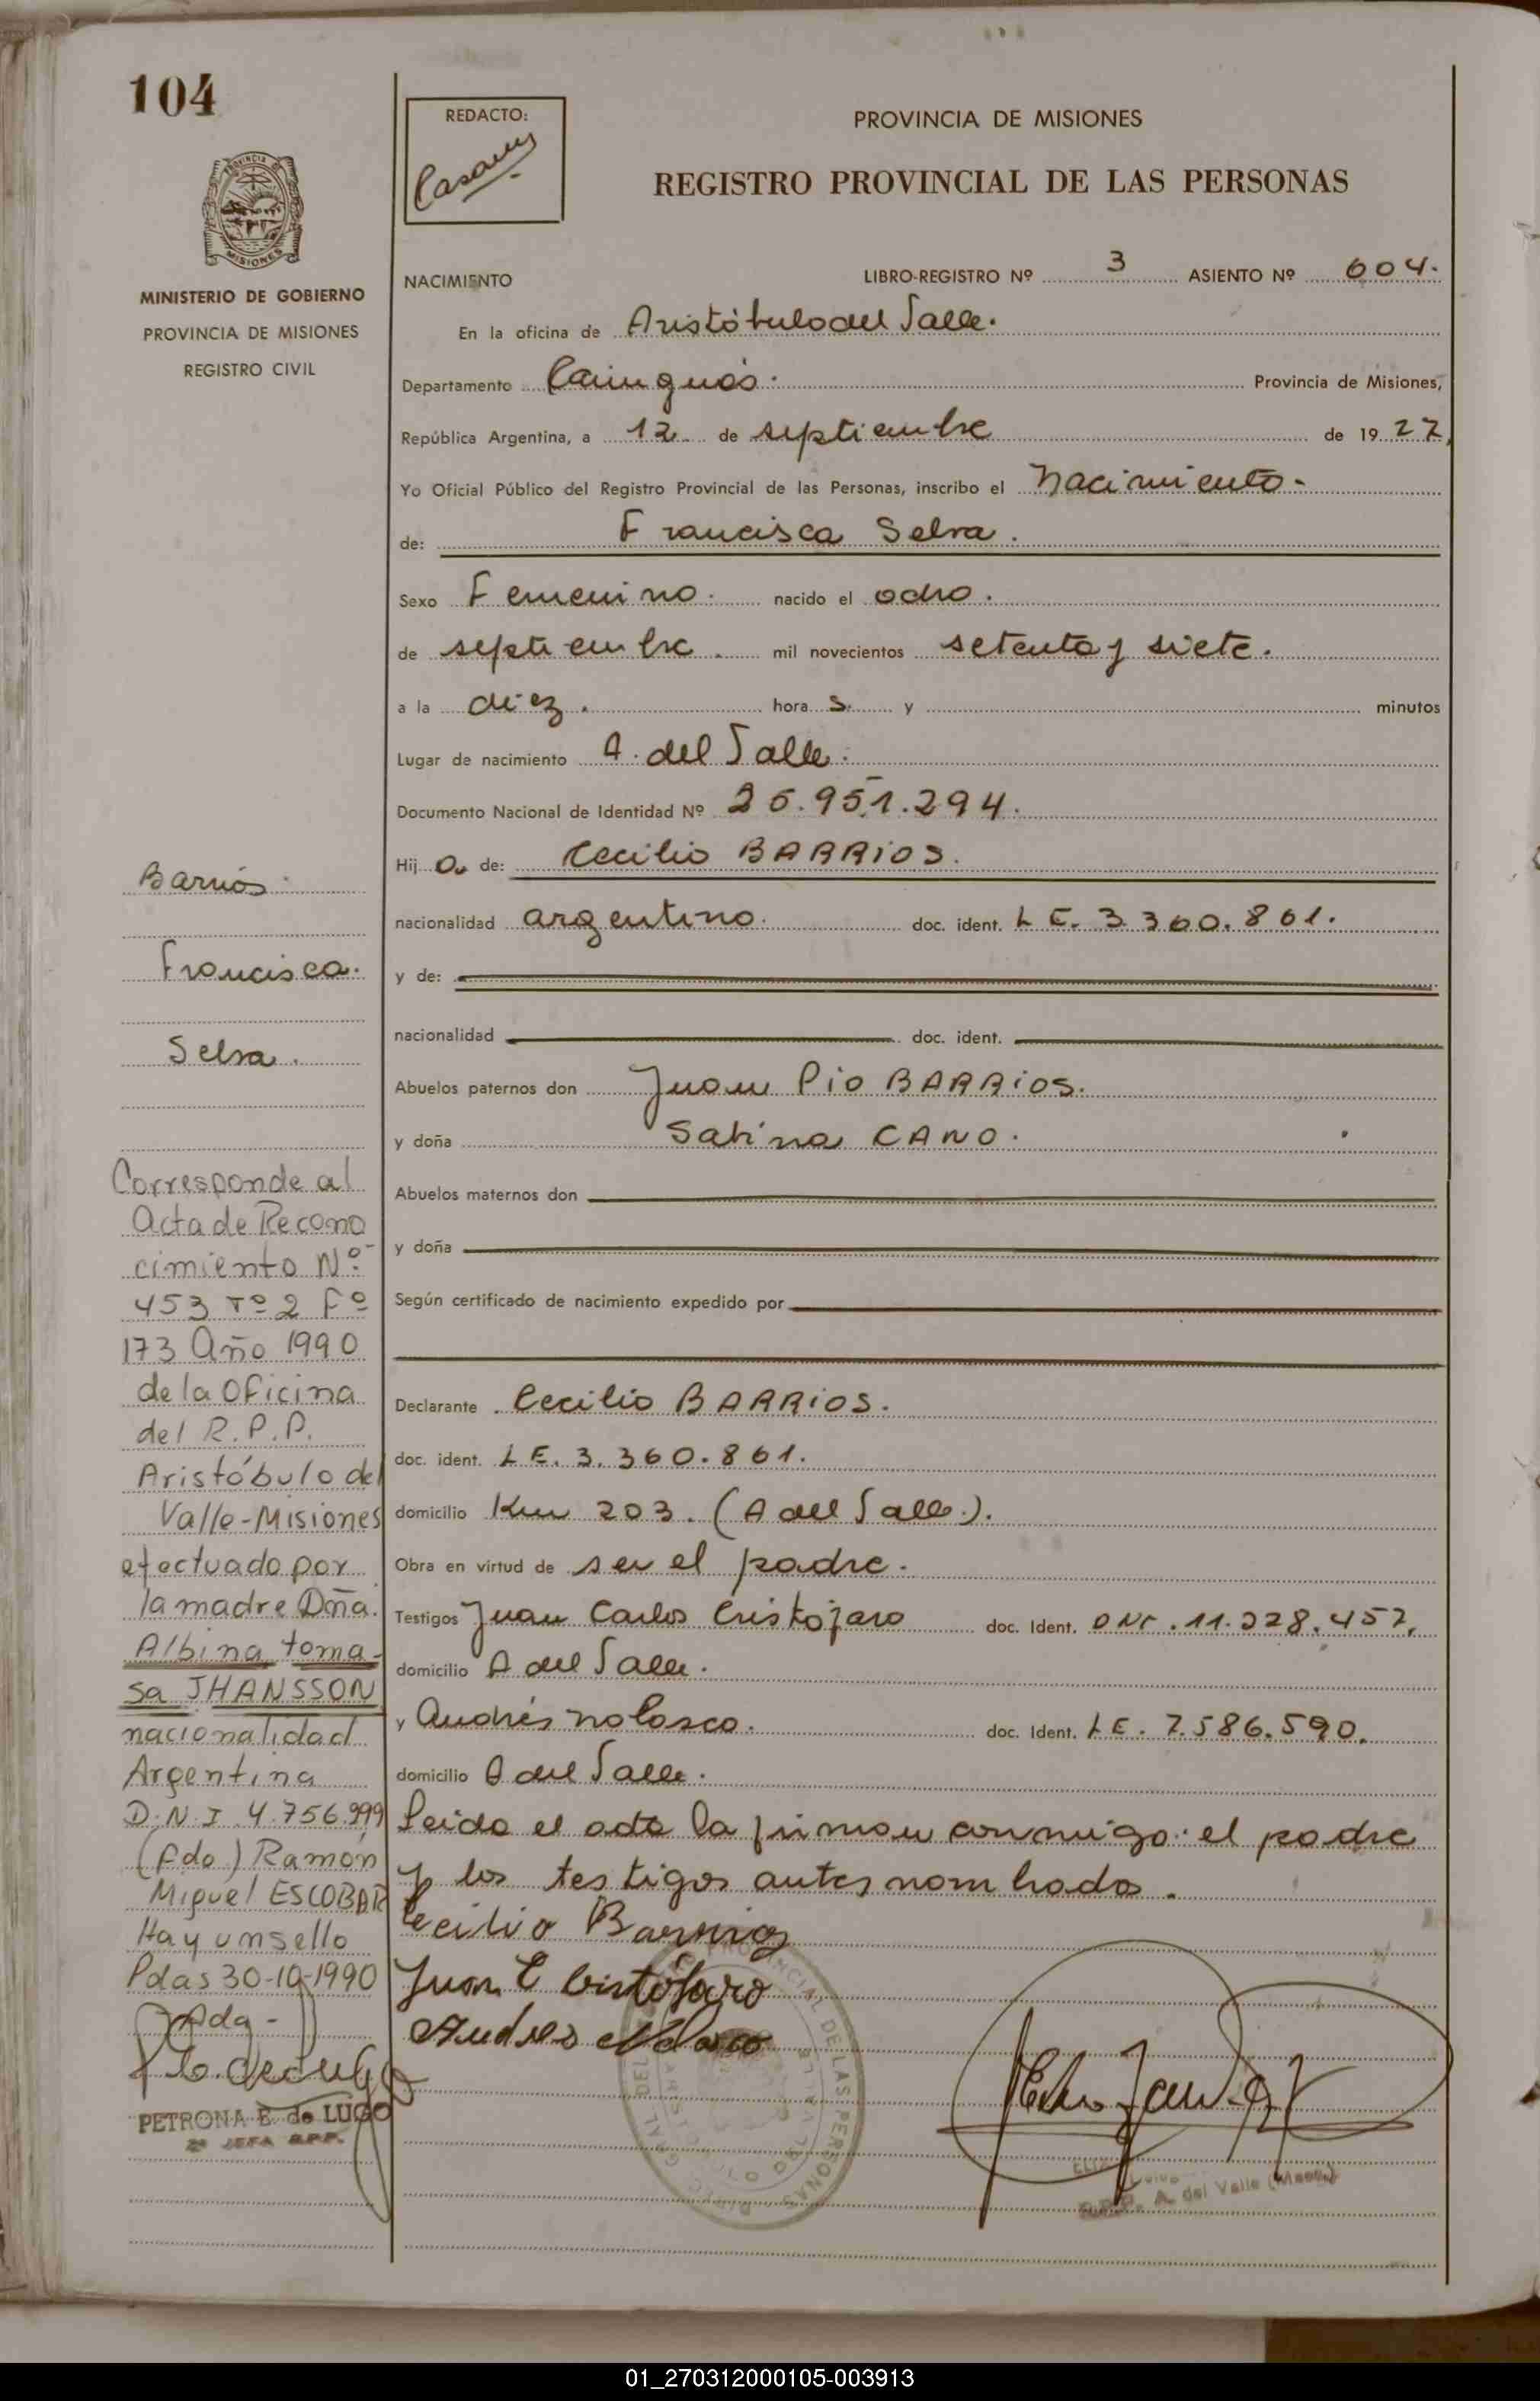 104
REDACTO:
Casauy
PROVINCIA DE MISIONES
REGISTRO PROVINCIAL DE LAS PERSONAS
MISIONES
MINISTERIO DE GOBIERNO
PROVINCIA DE MISIONES
REGISTRO CIVIL
NACIMIENTO LIBRO-REGISTRO Nº 3 ASIENTO Nº 604.
En la oficina de Aristóbulo del Valle.
Departamento Cainguás. Provincia de Misiones,
República Argentina, a 12 de septiembre de 19 77,
Yo Oficial Público del Registro Provincial de las Personas, inscribo el nacimiento.-
de: Francisca Selva.
Sexo Femenino. nacido el ocho.
de septiembre. mil novecientos setenta y siete.
a la diez. hora s. y minutos
Lugar de nacimiento A. del Valle.
Documento Nacional de Identidad Nº 25.951.294.
Hij a de: Cecilio BARRIOS.
nacionalidad argentino. doc. ident. L E. 3.360.861.
y de:
nacionalidad doc. ident.
Abuelos paternos don Juan Pio BARRIOS.
y doña Sabina CANO.
Abuelos maternos don
y doña
Según certificado de nacimiento expedido por
Declarante Cecilio BARRIOS.
doc. ident. L E. 3.360.861.
domicilio Km 203. (A del Valle.).
Obra en virtud de ser el padre.
Testigos Juan Carlos Cristófaro doc. Ident. DNI. 11.228.457,
domicilio A del Valle.
y Andrés nolasco. doc. Ident. L E. 7.586.590.
domicilio A del Valle.
Leida el acta la firman conmigo: el padre
y los testigos antes nombrados.
Cecilio Barrios
Juan C Cristófaro
Andres Nolasco
R.P.P. A. del Valle (Mnes.)
Barrios.
Francisca.
Selva.
Corresponde al
Acta de Recono
cimiento Nº
453 Tº 2 Fº
173 Año 1990
de la Oficina
del R.P.P.
Aristóbulo del
Valle-Misiones
efectuado por
la madre Dña.
Albina toma-
sa JHANSSON
nacionalidad
Argentina
D.N.I. 4.756.999
(Fdo) Ramón
Miguel ESCOBAR
Hay un sello
Pdas 30-10-1990
PETRONA E. de LUGO
2ª JEFA R.P.P.
01_270312000105-003913